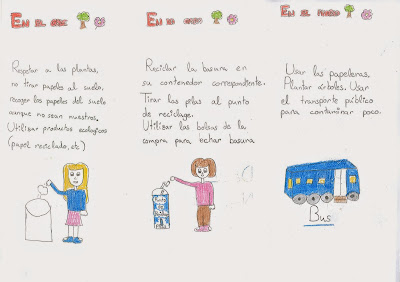 EN EL COLE
Respetar a las plantas,
no tirar papeles al suelo,
recoger los papeles del suelo
aunque no sean nuestros.
Utilizar productos ecologicos
(papel reciclado, etc)
EN MI CASA
Reciclar la basura en
su contenedor correspondiente.
Tirar las pilas al punto
de reciclage.
Utilizar las bolsas de la
compra para echar basura
EN EL MUNDO
Usar las papeleras,
Plantar árboles. Usar
el transporte público
para contaminar poco.
Bus